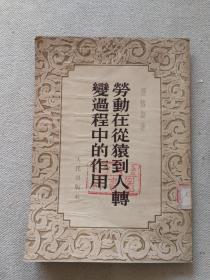 恩格斯著
勞動在從猿到人轉
變過程中的作用
人民出版社